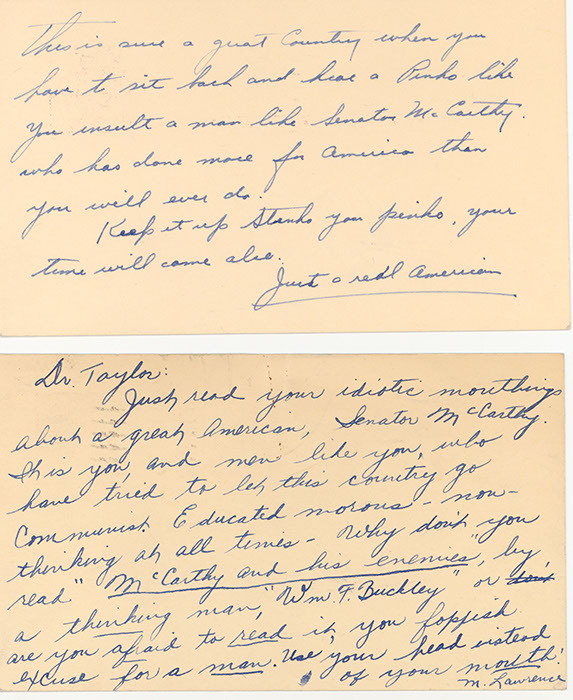 This is sure a great Country when you
have to sit back and hear a Pinko like
You insult a man like Senator McCarthy.
who has done more for America than
you will ever do.
Keep it up Stinko you pinko, your
time will come also.
Just a real American
Dr. Taylor:
Just read your idiotic mouthings
about a great American, Senator McCarthy.
It is you, and men like you, who
have tried to let this country go
Communist. Educated morons - non-
thinking at all times - Why don't you
read "McCarthy and his enemies", by
a thinking man, "Wm. F. Buckley" or
are you afraid to read it, you foppish
excuse for a man. Use your head instead
of your mouth!
M. Lawrence